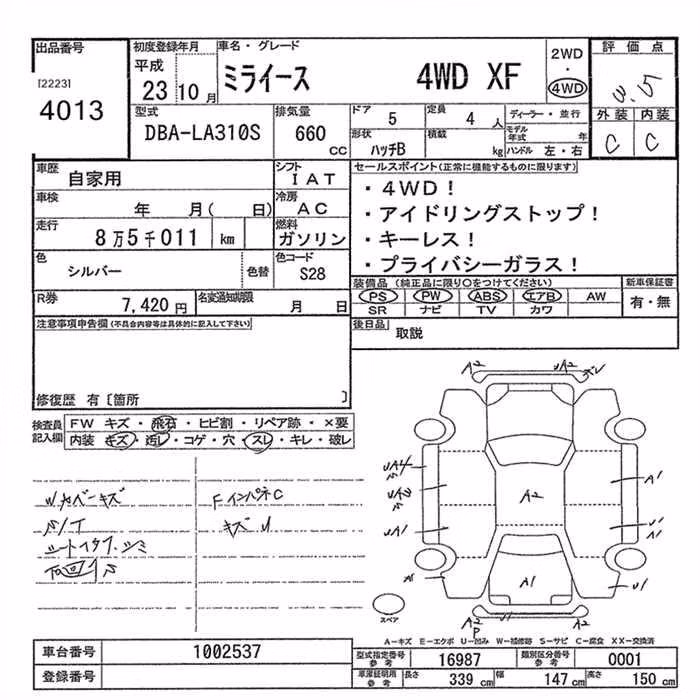 出品番号 初度登録年月 車名・グレード 2WD 評価点
[2223] 平成 ミライース 4WD XF ・
4013 23 10月 4WD
型式 排気量 ドア 5 定員 4人 ディーラー・並行 外装 内装
DBA-LA310S 660cc 形状 積載 モデル年式 年 C C
ハッチB kg ハンドル 左・右
車歴 自家用 シフト IAT セールスポイント(正常に機能するものに限ります)
車検 年 月( 日) 冷房 AC ・4WD!
走行 8万5千011 km 燃料 ガソリン ・アイドリングストップ!
色 シルバー 色替 色コード S28 ・キーレス!
・プライバシーガラス!
R券 7,420円 名変通知期限 月 日 装備品(純正品に限り○をつけてください) 新車保証書
PS PW ABS エアB AW 有・無
SR ナビ TV カワ
注意事項申告欄(不具合内容等は具体的に記入して下さい) 後日品 取説
修復歴 有〔箇所 〕
検査員記入欄 FW キズ・飛石・ヒビ割・リペア跡・×要
内装 キズ・汚レ・コゲ・穴・スレ・キレ・破レ
A2 A2
Wカバーキズ FインパネC
キズU
A2
A1
UA1
A1
A1
U1
U1
A2
スペア
A-キズ E-エクボ U-凹み W-補修跡 S-サビ C-腐食 XX-交換済
車台番号 1002537 型式指定番号 参考 16987 類別区分番号 参考 0001
登録番号 車庫証明用 参考 長さ 339cm 幅 147cm 高さ 150cm